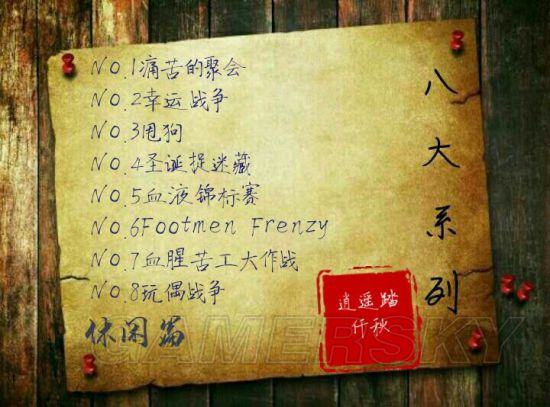 NO.1痛苦的聚会
NO.2幸运战争
NO.3甩狗
NO.4圣诞捉迷藏
NO.5血液锦标赛
NO.6Footmen Frenzy
NO.7血腥苦工大作战
NO.8玩偶战争
休闲篇
八大系列
逍遥踏
仟秋
GAMERSKY